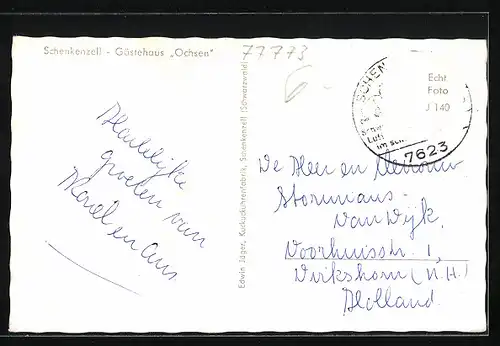 Schenkenzell - Gästehaus „Ochsen"
77773
Echt
Foto
J 140
SCHEN
Luft
im sch
7623
Edwin Jäger, Kuckucksuhrenfabrik, Schenkenzell (Schwarzwald)
Hartelijke
groeten van
Karel en Ans
De Heer en Mevrouw
van Wijk,
Voorhuisstr. 1,
(N.H.)
Holland